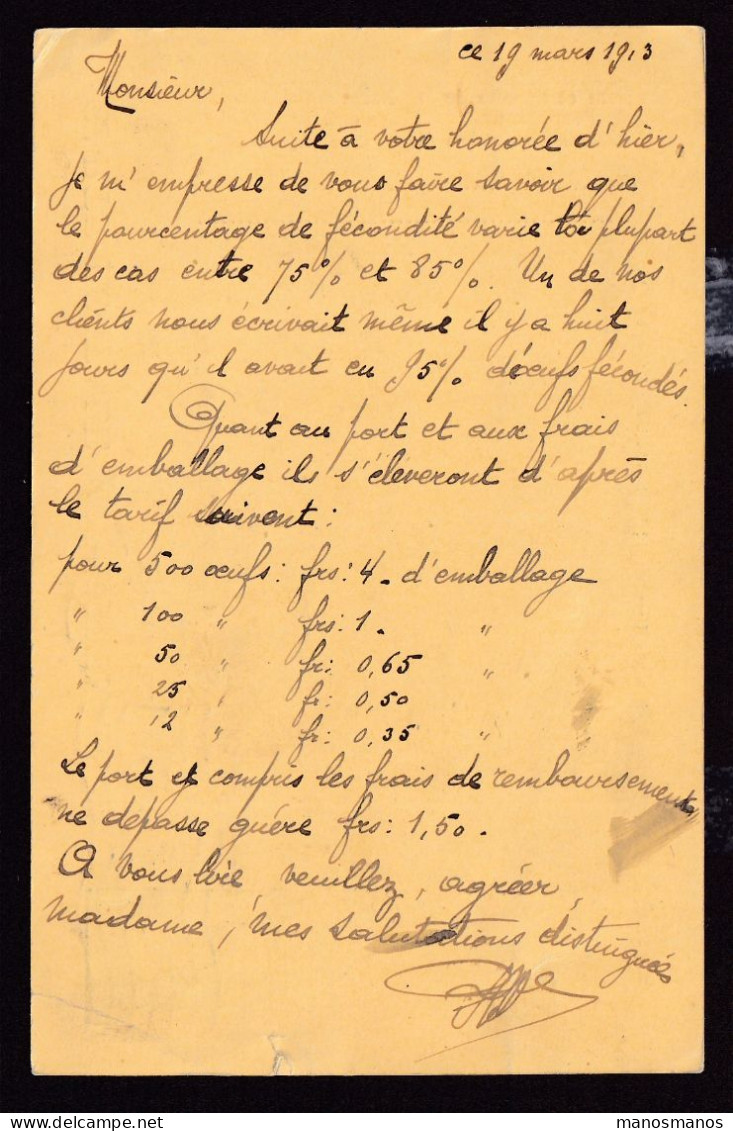 ce 19 mars 1913
Monsieur,
Suite à votre honorée d'hier,
je m'empresse de vous faire savoir que
le pourcentage de fécondité varie la plupart
des cas entre 75% et 85%. Un de nos
clients nous écrivait même il y a huit
jours qu'il avait eu 95% d'oeufs fécondés.
Quant au port et aux frais
d'emballage ils s'éleveront d'après
le tarif suivent :
pour 500 œufs : frs: 4. d'emballage
" 100 " frs: 1. "
" 50 " fr: 0,65 "
" 25 " fr: 0,50
" 12 " fr: 0,35 "
Le port y compris les frais de remboursements
ne depasse guére frs: 1,50.
A vous lire veuillez, agréer,
madame, mes salutations distinguées
manosmanos